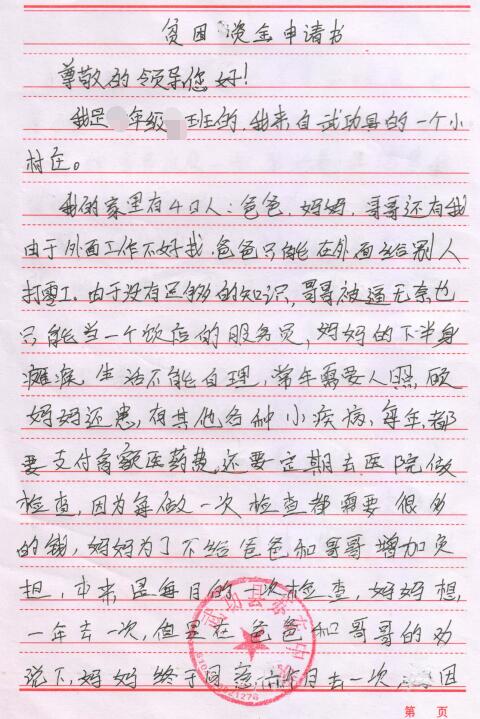 贫困资金申请书
尊敬的领导您好!
我是 年级 班的,我来自武功县的一个小
村庄。
我的家里有4口人:爸爸,妈妈,哥哥还有我
由于外面工作不好找,爸爸只能在外面给别人
打零工.由于没有足够的知识,哥哥被逼无奈也
只能当一个饭店的服务员,妈妈的下半身
瘫痪,生活不能自理,常年需要人照顾
妈妈还患有其他各种小疾病,每年都
要支付高额医药费,还要定期去医院做
检查,因为每做一次检查都需要很多
的钱,妈妈为了不给爸爸和哥哥增加负
担,本来是每月的一次检查,妈妈想,
一年去一次,但是在爸爸和哥哥的劝
说下,妈妈终于同意 月去一次 因
武功县
第 页